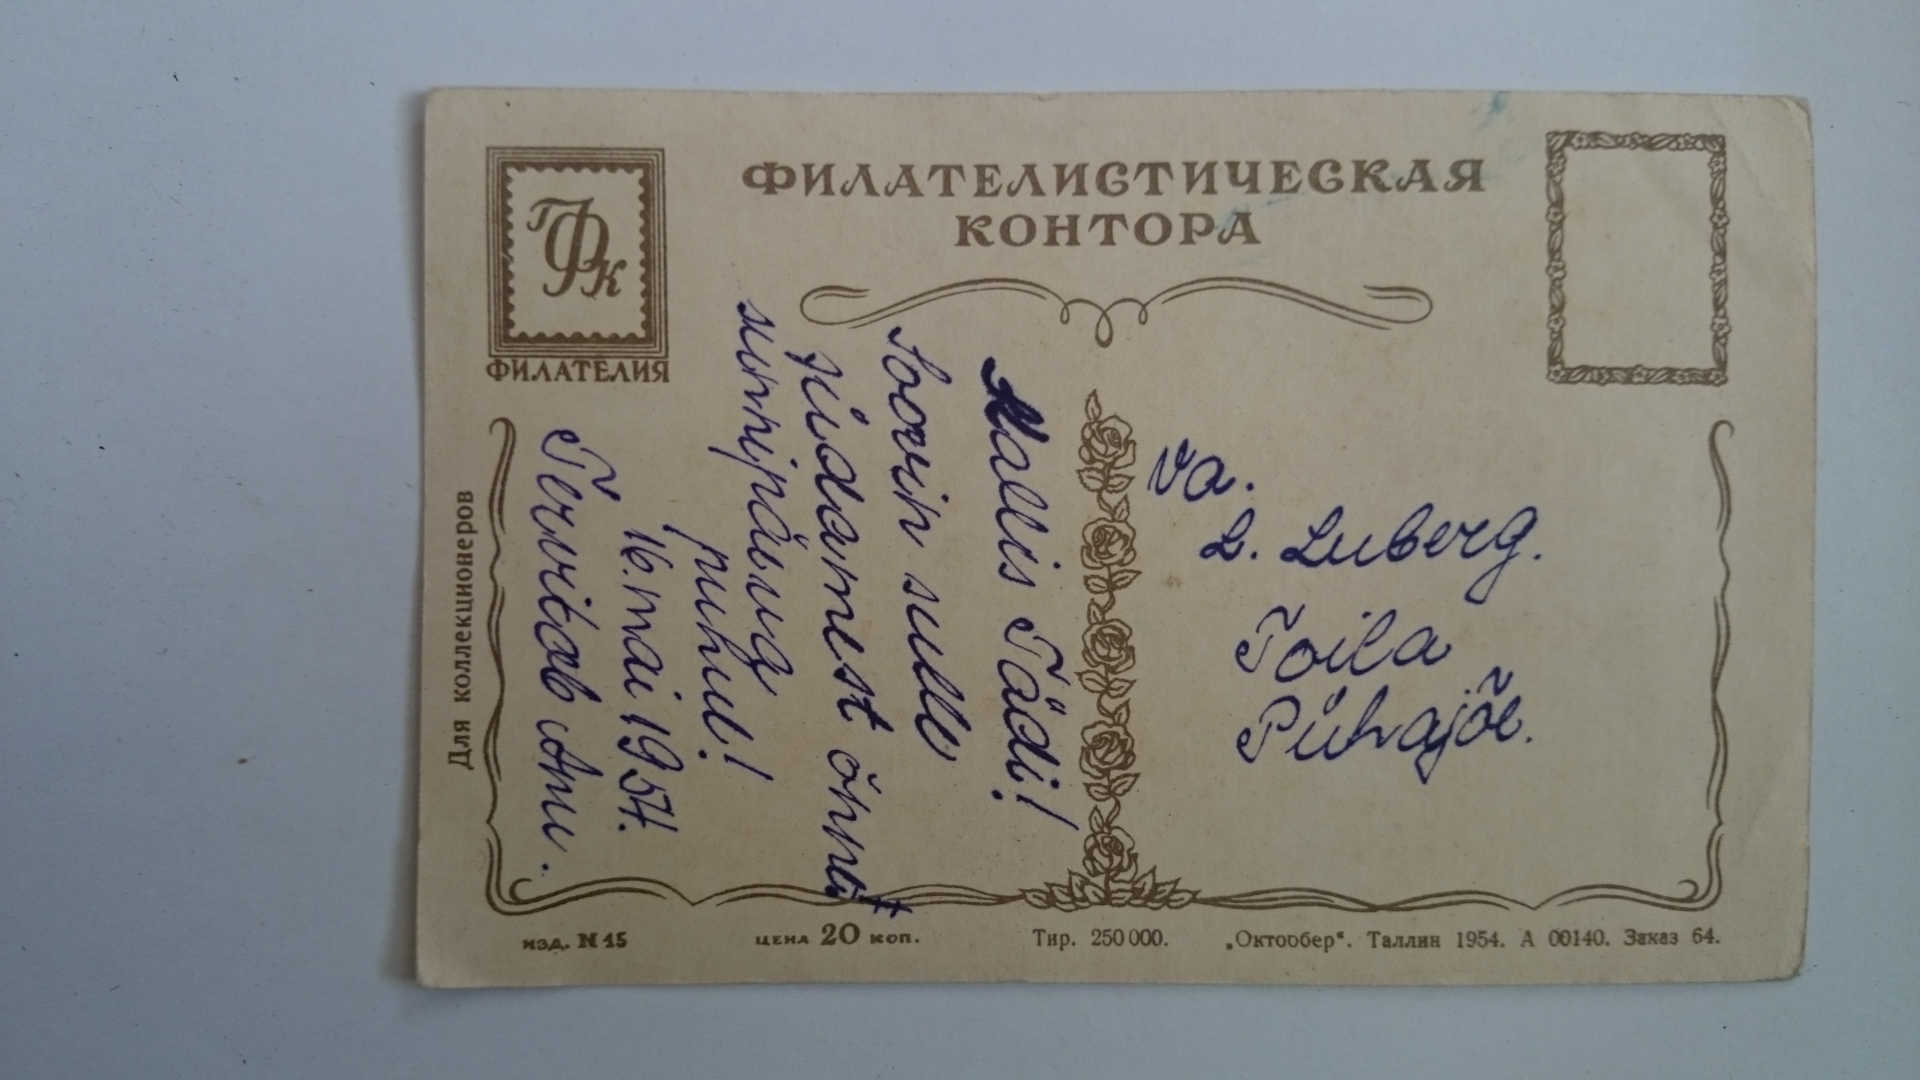 ФИЛАТЕЛИСТИЧЕСКАЯ
КОНТОРА
ГФК
ФИЛАТЕЛИЯ
Для коллекционеров
Kallis Tädi!
Soovin sulle
südamest õnne
sünnipäeva
puhul!
16. mai 1957.
Tervitab Anu.
va.
L. Luberg.
Toila
Pühajõe.
изд. N 15
цена 20 коп.
Тир. 250 000.
„Октообер“. Таллин 1954. А 00140. Заказ 64.